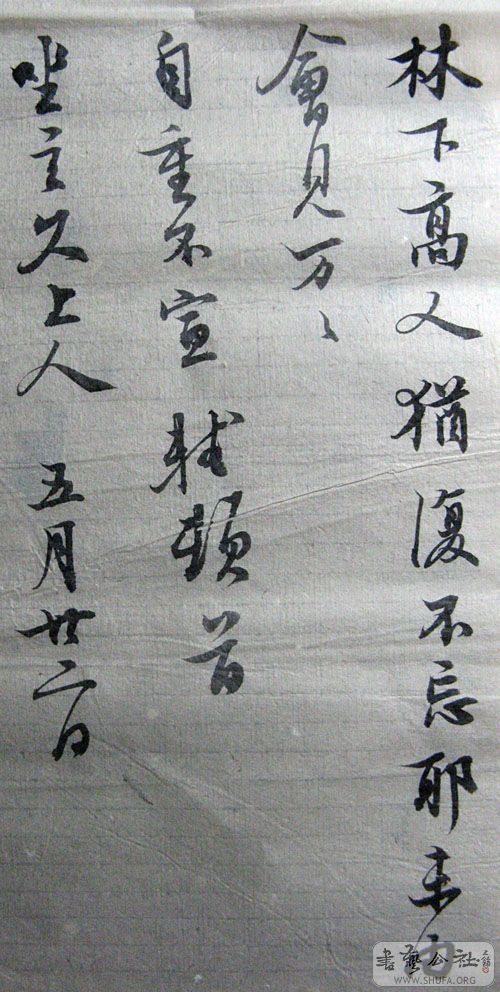 林下高人猶復不忘耶未由
會見万〻
自重不宣軾頓首
坐主久上人 五月廿二日
書藝公社
WWW.SHUFA.ORG